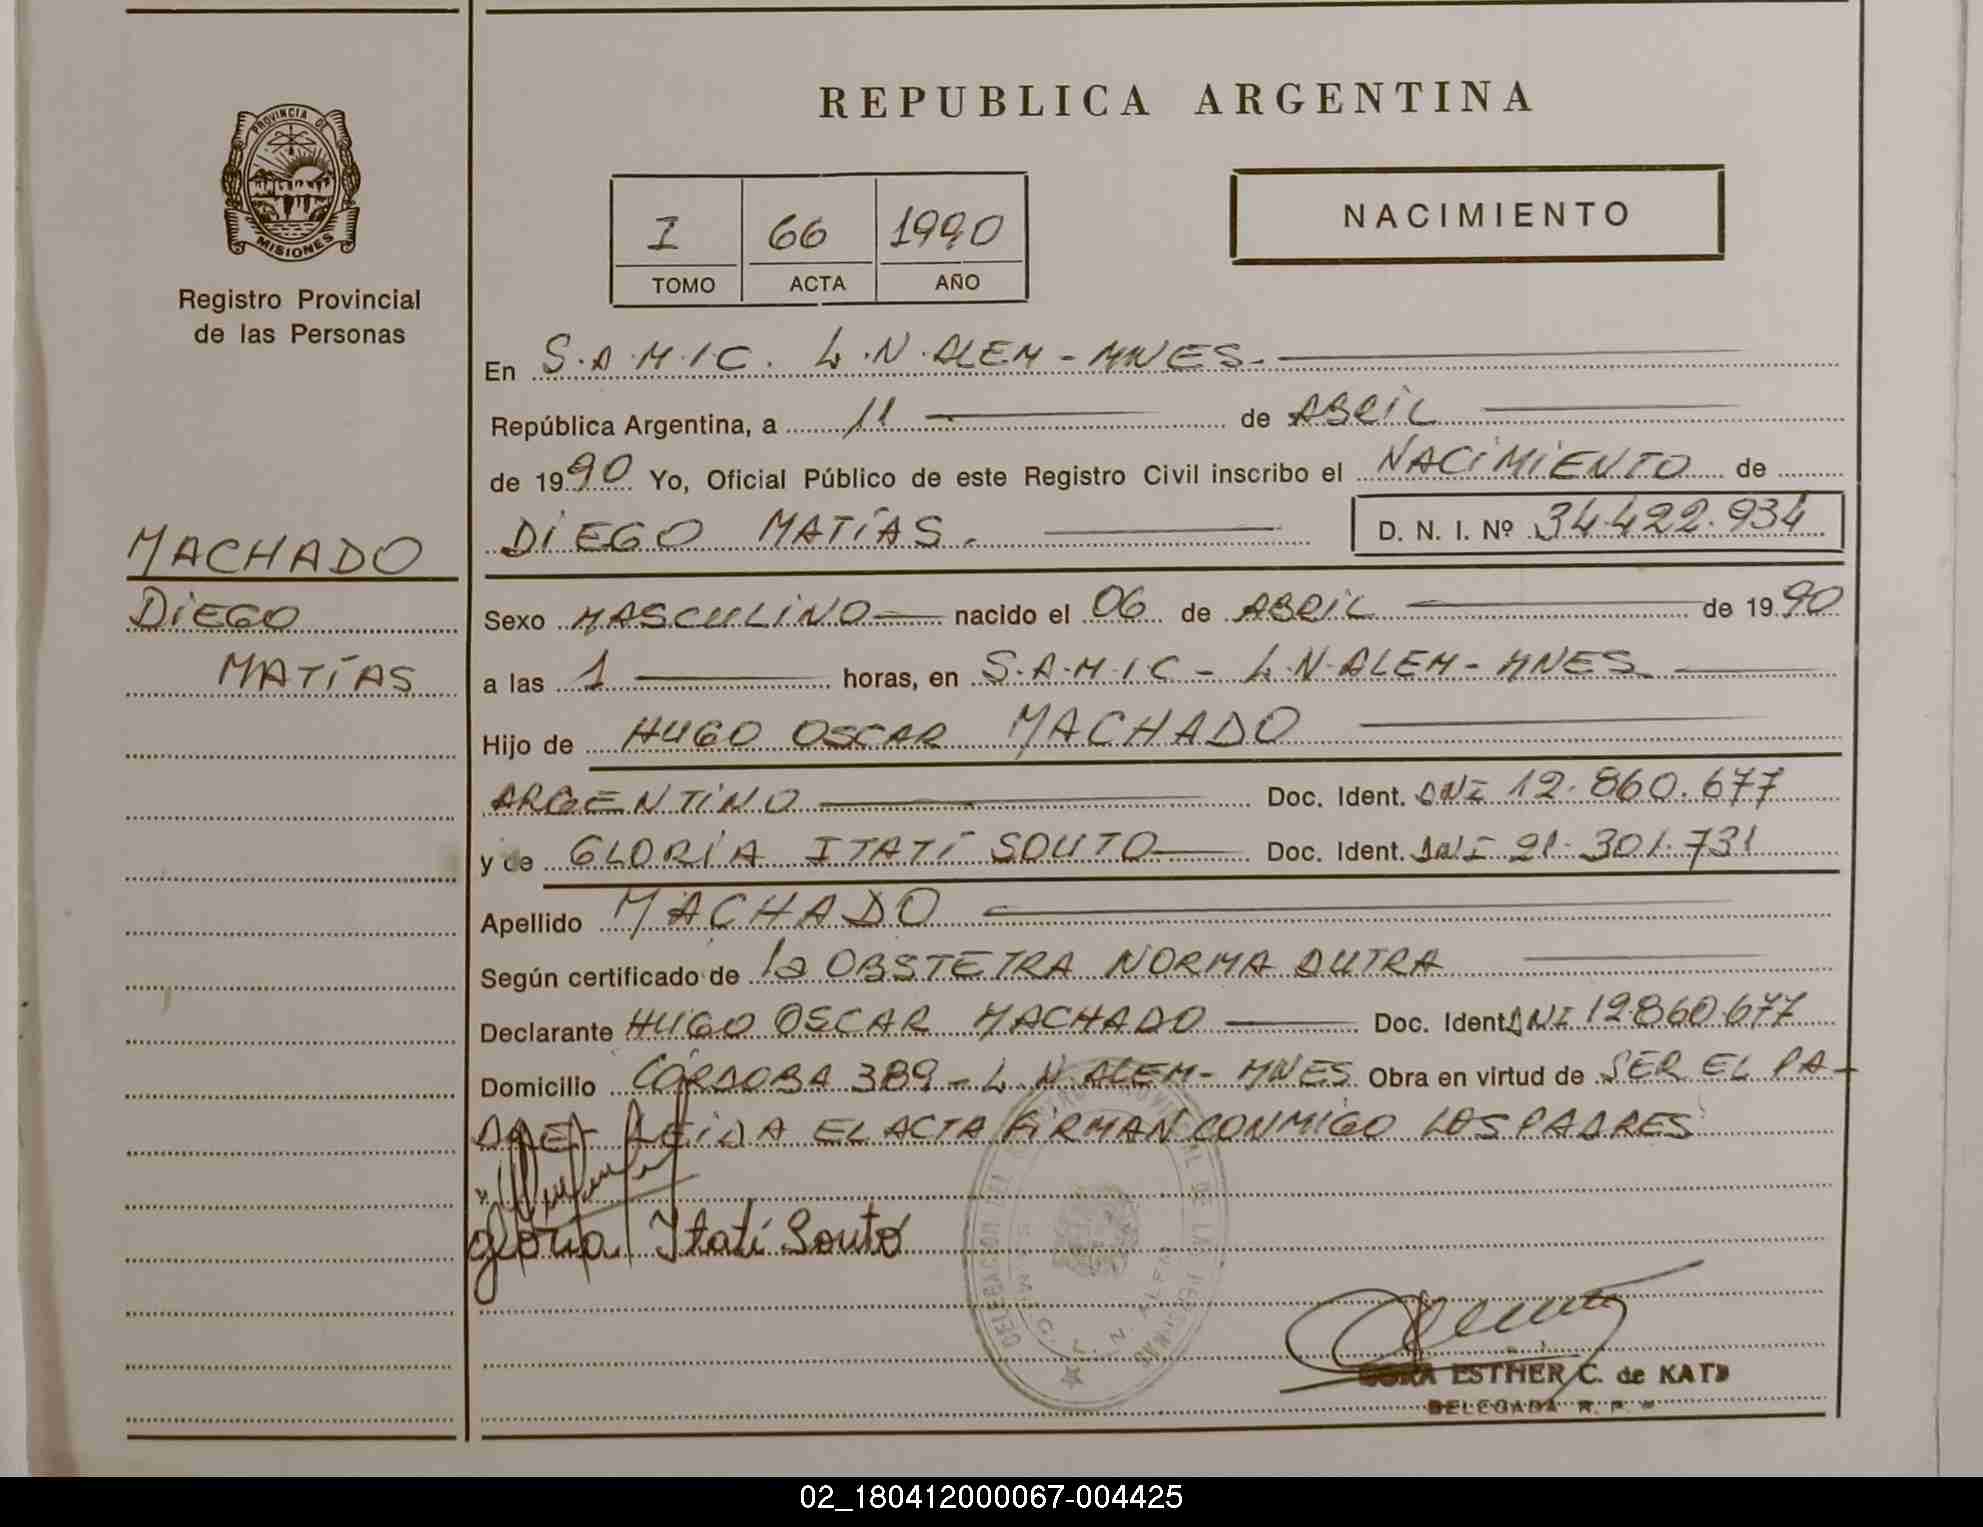 REPUBLICA ARGENTINA
PROVINCIA DE
MISIONES
Registro Provincial
de las Personas
I 66 1990
TOMO ACTA AÑO
NACIMIENTO
En S.A.M.I.C. L.N.ALEM - MNES.
República Argentina, a 11 de ABRIL
de 1990 Yo, Oficial Público de este Registro Civil inscribo el NACIMIENTO de
DIEGO MATÍAS. D. N. I. Nº 34.422.934
MACHADO
DIEGO
MATÍAS
Sexo MASCULINO nacido el 06 de ABRIL de 1990
a las 1 horas, en S.A.M.I.C - L.N.ALEM - MNES
Hijo de HUGO OSCAR MACHADO
ARGENTINO Doc. Ident. DNI 12.860.677
y de GLORIA ITATÍ SOUTO Doc. Ident. DNI 21.301.731
Apellido MACHADO
Según certificado de la OBSTETRA NORMA DUTRA
Declarante HUGO OSCAR MACHADO Doc. Ident. DNI 12.860.677
Domicilio CÓRDOBA 389 - L.N.ALEM - MNES Obra en virtud de SER EL PA-
DRE- LEIDA EL ACTA FIRMAN CONMIGO LOS PADRES
Gloria Itatí Souto
DELEGACION DEL REGISTRO PROVINCIAL DE LAS PERSONAS
L. N. ALEM
ESTHER C. de KATZ
DELEGADA R. P.
02_180412000067-004425